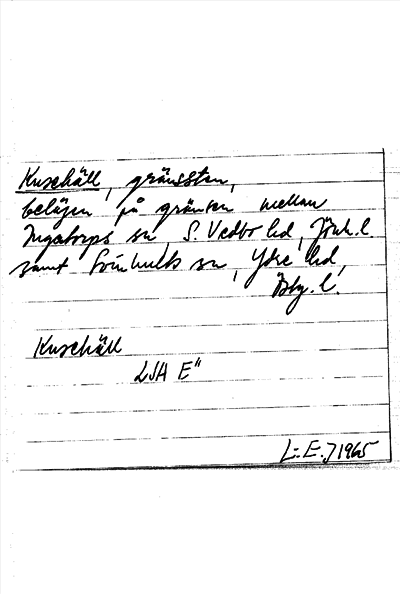 Kusehäll, gränssten,
belägen på gränsen mellan
Ingatorps sn, S. Vedbo hd, Jönk. l.
samt Svinhults sn, Ydre hd,
Östg. l.
Kusehäll
LSA E"
L-E. J 1965